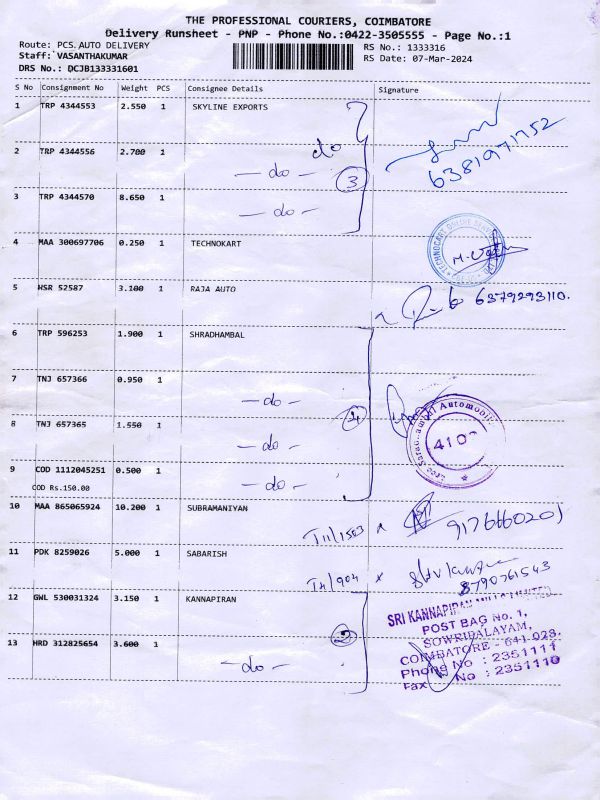 THE PROFESSIONAL COURIERS, COIMBATORE
Delivery Runsheet - PNP - Phone No.:0422-3505555 - Page No.:1
Route: PCS.AUTO DELIVERY RS No.: 1333316
Staff: VASANTHAKUMAR RS Date: 07-Mar-2024
DRS No.: DCJB133331601
S No Consignment No Weight PCS Consignee Details Signature
1 TRP 4344553 2.550 1 SKYLINE EXPORTS
do
6381971752
2 TRP 4344556 2.700 1 - do - 3
3 TRP 4344570 8.650 1 - do -
4 MAA 300697706 0.250 1 TECHNOKART
5 HSR 52587 3.100 1 RAJA AUTO 6379293110.
6 TRP 596253 1.900 1 SHRADHAMBAL
7 TNJ 657366 0.950 1 - do - 4
8 TNJ 657365 1.550 1 - do -
9 COD 1112045251 0.500 1 - do -
COD Rs.150.00
10 MAA 865065924 10.200 1 SUBRAMANIYAN 9176660201
11 PDK 8259026 5.000 1 SABARISH T4/904 8790761543
12 GWL 530031324 3.150 1 KANNAPIRAN
SRI KANNAPIRAN MILLS LIMITED
POST BAG No. 1,
SOWRIPALAYAM,
COIMBATORE - 641 028.
13 HRD 312825654 3.600 1 - do - 2
Phone No : 2351111
Fax No : 2351110